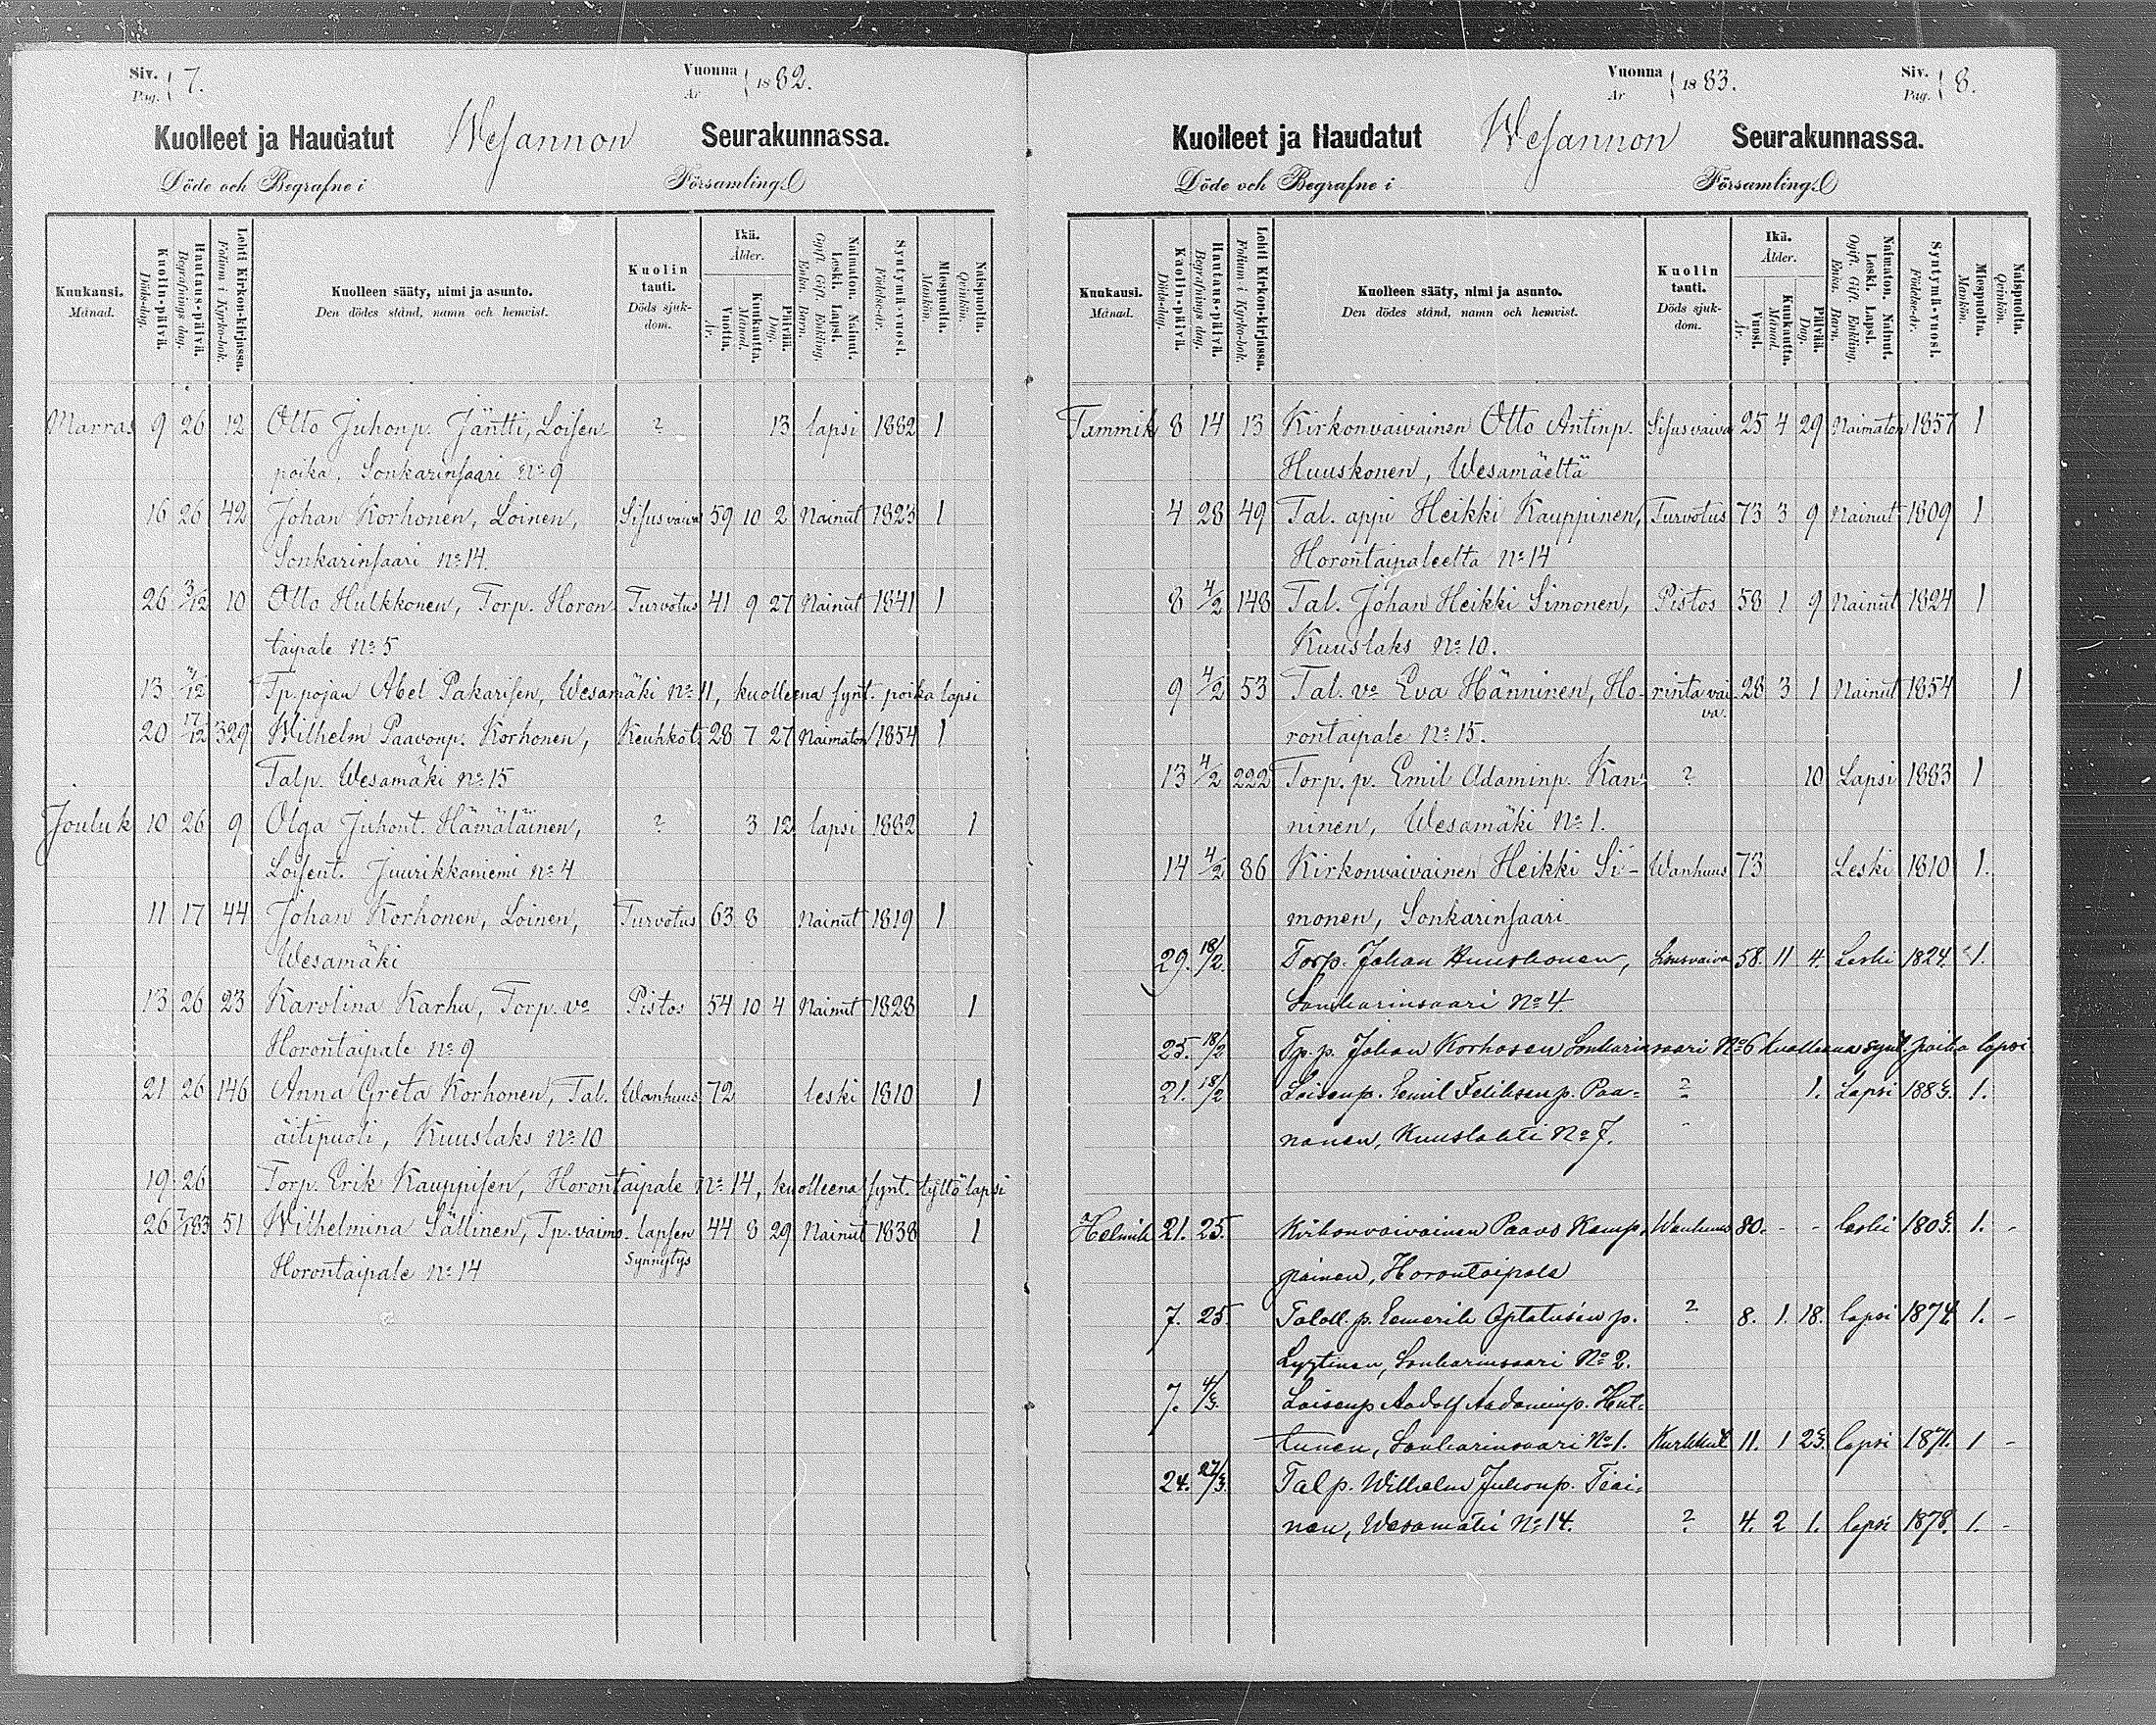 Siv. 7.
Pag.
Vuonna 1882.
År
Kuolleet ja Haudatut Wesannon Seurakunnassa.
Döde och Begrafne i Församling.
Kuukausi.
Månad.
Kuolin-päivä.
Döds-dag.
Hautaus-päivä.
Begrafnings dag.
Lehti Kirkon-kirjassa.
Folium i Kyrko-bok.
Kuolleen sääty, nimi ja asunto.
Den dödes stånd, namn och hemvist.
Kuolin tauti.
Döds sjuk-dom.
Ikä.
Ålder.
Vuotta.
År.
Kuukautta.
Månad.
Päivää.
Dag.
Naimaton. Nainut. Leski. Lapsi.
Ogift. Gift. Enkling. Enka. Barn.
Syntymä-vuosi.
Födelse-år.
Miespuolta.
Mankön.
Naispuolta.
Qvinkön.
Marras 9 26 12 Otto Juhonp. Jäntti, Loisen- ? 13 lapsi 1882 1
poika. Sonkarinsaari No 9
16 26 42 Johan Korhonen, Loinen, Sisusvaiva 59 10 2 Nainut 1823 1
Sonkarinsaari No 14.
26 3/12 10 Otto Hulkkonen, Torp. Horon- Turvotus 41 9 27 Nainut 1841 1
taipale No 5
13 /12 Tp. pojan Abel Pakarisen, Wesamäki No 11, kuolleena synt. poika lapsi
20 17/12 329 Wilhelm Paavonp. Korhonen, Keuhkot. 28 7 27 Naimaton 1854 1
Talp. Wesamäki No 15
Jouluk 10 26 9 Olga Juhont. Hämäläinen, ? 3 12 lapsi 1882 1
Loisent. Juurikkaniemi No 4
11 17 44 Johan Korhonen, Loinen, Turvotus 63 8 Nainut 1819 1
Wesamäki
13 26 23 Karolina Karhu, Torp. vo Pistos 54 10 4 Nainut 1828 1
Horontaipale No 9
21 26 146 Anna Greta Korhonen, Tal. Wanhuus 72 leski 1810 1
äitipuoli, Kuuslaks No 10
19 26 Torp. Erik Kauppisen, Horontaipale No 14, kuolleena synt. tyttö lapsi
26 7/1 83 51 Wilhelmina Sällinen, Tp. vaimo. lapsen 44 8 29 Nainut 1838 1
Horontaipale No 14 synnytys
Vuonna 1883.
År
Siv. 8.
Pag.
Kuolleet ja Haudatut Wesannon Seurakunnassa.
Döde och Begrafne i Församling.
Kuukausi.
Månad.
Kuolin-päivä.
Döds-dag.
Hautaus-päivä.
Begrafnings dag.
Lehti Kirkon-kirjassa.
Folium i Kyrko-bok.
Kuolleen sääty, nimi ja asunto.
Den dödes stånd, namn och hemvist.
Kuolin tauti.
Döds sjuk-dom.
Ikä.
Ålder.
Vuosi.
År.
Kuukautta.
Månad.
Päivää.
Dag.
Naimaton. Nainut. Leski. Lapsi.
Ogift. Gift. Enkling. Enka. Barn.
Syntymä-vuosi.
Födelse-år.
Miespuolta.
Mankön.
Naispuolta.
Qvinkön.
Tammik 8 14 13 Kirkonvaivainen Otto Antinp. Sisusvaiva 25 4 29 Naimaton 1857 1
Huuskonen, Wesamäeltä
4 28 49 Tal. appi Heikki Kauppinen, Turvotus 73 3 9 Nainut 1809 1
Horontaipaleelta No 14
8 4/2 148 Tal. Johan Heikki Simonen, Pistos 58 1 9 Nainut 1824 1
Kuuslaks No 10.
9 4/2 53 Tal. vo Eva Hänninen, Ho- rinta vai- 28 3 1 Nainut 1854 1
rontaipale No 15. va.
13 4/2 222 Torp. p. Emil Adaminp. Kan- ? 10 Lapsi 1883 1
ninen, Wesamäki No 1.
14 4/2 86 Kirkonvaivainen Heikki Si- Wanhuus 73 Leski 1810 1.
monen, Sonkarinsaari
29. 18/2. Torp. Johan Huuskonen, Sisusvaiva 58. 11 4. Leski 1824. 1.
Sonkarinsaari No 4.
25. 18/2 Tp. p. Johan Korhosen Sonkarinsaari No 6 kuolleena synt. poika lapsi
21. 18/2 Loisenp. Eemil Feliksenp. Paa= ? 1. Lapsi 1883. 1.
nanen, Kuuslahti No 7.
Helmik 21. 25. Kirkonvaivainen Paavo Kaup= Wanhuus 80. - - leski 1803. 1. -
painen, Horontaipale
7. 25. Taloll. p. Eemerik Optatusen p. ? 8. 1. 18. lapsi 1874 1. -
Lyytinen, Sonkarinsaari No 2.
7. 4/3. Loisenp Aadolf Aadaminp. Hut=
tunen, Sonkarinsaari No 1. Kurkkut 11. 1 23. lapsi 1871. 1 -
24. 27/3. Talp. Wilhelm Juhonp. Tiai=
nen, Wesamäki No 14. ? 4. 2 1. lapsi 1878. 1. -